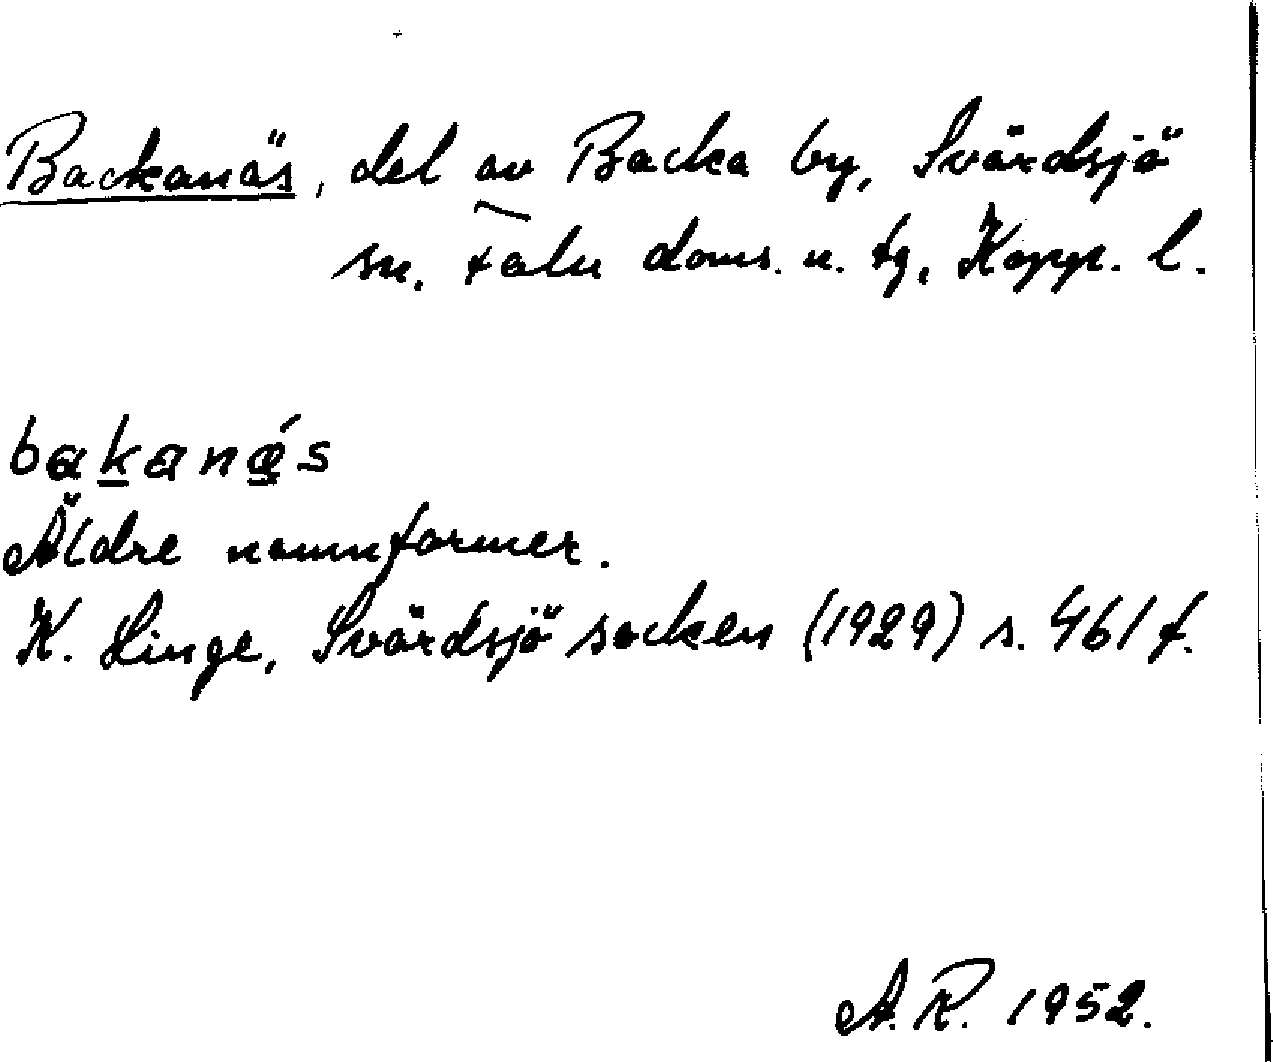 Backanäs, del av Backa by, Svärdsjö
sn. Falu doms. u. tg, Kopp. l.
bakanǽs
Äldre namnformer.
K. Linge, Svärdsjö socken (1929) s. 461 f.
A.R. 1952.